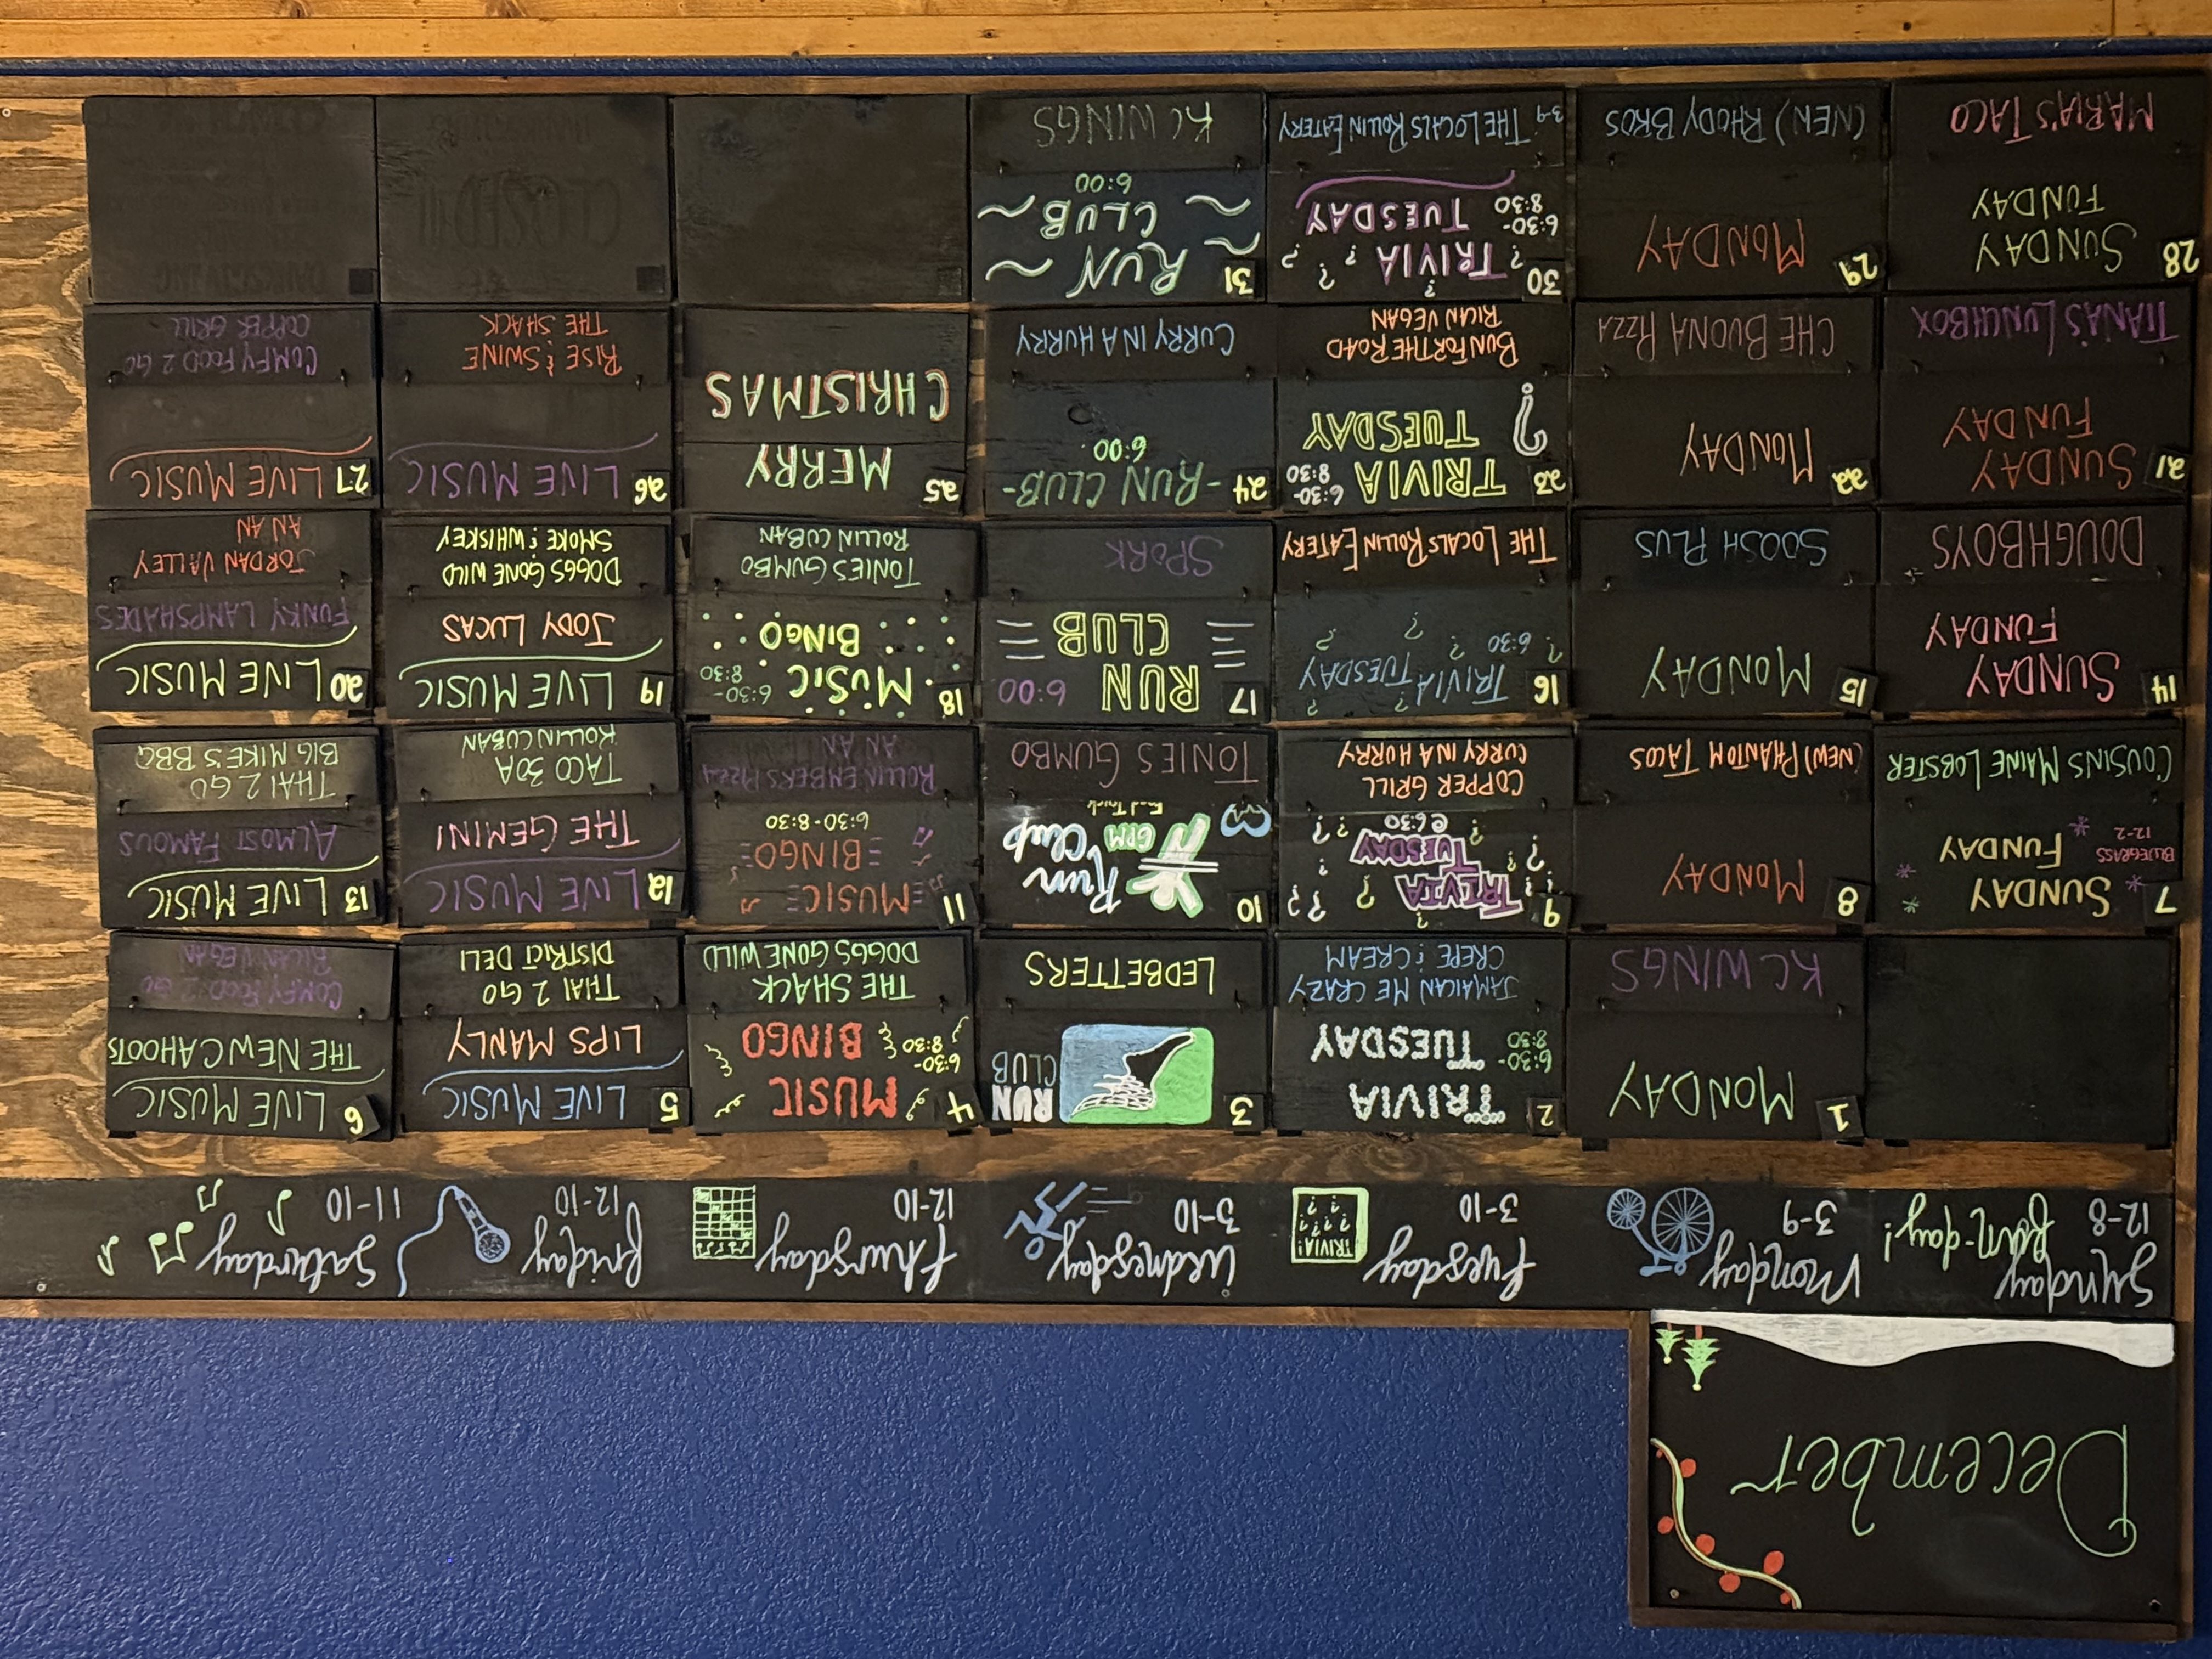 December
Sunday
12-8
Fam-day!
Monday
3-9
Tuesday
3-10
TRIVIA!
? ? ?
? ? ? ?
? ?
Wednesday
3-10
Thursday
12-10
Friday
12-10
Saturday
11-10
1
MONDAY
KC WINGS
2
TRIVIA
TUESDAY
6:30-
8:30
JAMAICAN ME CRAZY
CREPE & CREAM
3
RUN
CLUB
LEDBETTERS
4
MUSIC
BINGO
6:30-
8:30
THE SHACK
DOGGS GONE WILD
5
LIVE MUSIC
LIPS MANLY
THAI 2 GO
DISTRICT DELI
6
LIVE MUSIC
THE NEW CAHOOTS
COMFY FOOD 2 GO
RICAN VEGAN
7
SUNDAY
FUNDAY
BLUEGRASS
12-2
COUSINS MAINE LOBSTER
8
MONDAY
(NEW) PHANTOM TACOS
9
TRIVIA
TUESDAY
@6:30
COPPER GRILL
CURRY IN A HURRY
10
Run
Club
6PM
Food Truck
TONIES GUMBO
11
MUSIC
BINGO
6:30-8:30
ROLLIN EMBERS PIZZA
AN AN
12
LIVE MUSIC
THE GEMINI
TACO 30A
ROLLIN CUBAN
13
LIVE MUSIC
ALMOST FAMOUS
THAI 2 GO
BIG MIKE'S BBQ
14
SUNDAY
FUNDAY
DOUGHBOYS
15
MONDAY
SOOSH PLUS
16
TRIVIA TUESDAY
6:30
THE LOCALS ROLLIN EATERY
17
RUN
CLUB
6:00
SPORK
18
MUSIC
BINGO
6:30-
8:30
TONIES GUMBO
ROLLIN CUBAN
19
LIVE MUSIC
JODY LUCAS
DOGGS GONE WILD
SMOKE & WHISKEY
20
LIVE MUSIC
FUNKY LAMPSHADES
JORDAN VALLEY
AN AN
21
SUNDAY
FUNDAY
TIANA'S LUNCHBOX
22
MONDAY
CHE BUONA PIZZA
23
TRIVIA
TUESDAY
6:30-
8:30
?
BUN FOR THE ROAD
RICAN VEGAN
24
-RUN CLUB-
6:00
CURRY IN A HURRY
25
MERRY
CHRISTMAS
26
LIVE MUSIC
RISE & SWINE
THE SHACK
27
LIVE MUSIC
COMFY FOOD 2 GO
COPPER GRILL
28
SUNDAY
FUNDAY
MARIA'S TACO
29
MONDAY
(NEW) RHODY BROS
30
TRIVIA
TUESDAY
6:30-
8:30
3-9 THE LOCALS ROLLIN EATERY
31
~ RUN ~
~ CLUB ~
6:00
KC WINGS
CLOSED!!